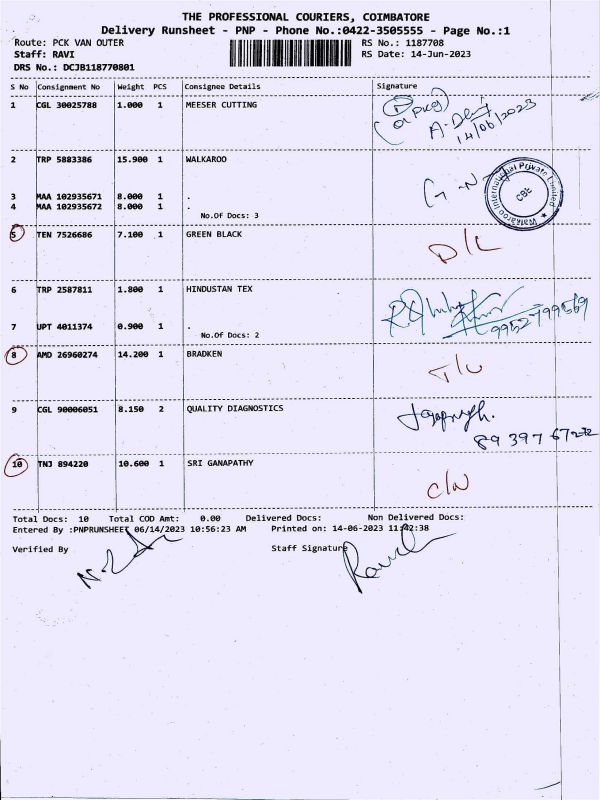 THE PROFESSIONAL COURIERS, COIMBATORE
Delivery Runsheet - PNP - Phone No.:0422-3505555 - Page No.:1
Route: PCK VAN OUTER RS No.: 1187708
Staff: RAVI RS Date: 14-Jun-2023
DRS No.: DCJB118770801
S No Consignment No Weight PCS Consignee Details Signature
1 CGL 30025788 1.000 1 MEESER CUTTING
14/06/2023
2 TRP 5883386 15.900 1 WALKAROO
Walkaroo International Private Limited
CBE
3 MAA 102935671 8.000 1 .
4 MAA 102935672 8.000 1 .
No.Of Docs: 3
5 TEN 7526686 7.100 1 GREEN BLACK
D/L
6 TRP 2587811 1.800 1 HINDUSTAN TEX
7 UPT 4011374 0.900 1 .
No.Of Docs: 2
8 AMD 26960274 14.200 1 BRADKEN
T/U
9 CGL 90006051 8.150 2 QUALITY DIAGNOSTICS
10 TNJ 894220 10.600 1 SRI GANAPATHY
C/W
Total Docs: 10 Total COD Amt: 0.00 Delivered Docs: Non Delivered Docs:
Entered By :PNPRUNSHEET 06/14/2023 10:56:23 AM Printed on: 14-06-2023 11:42:38
Verified By Staff Signature